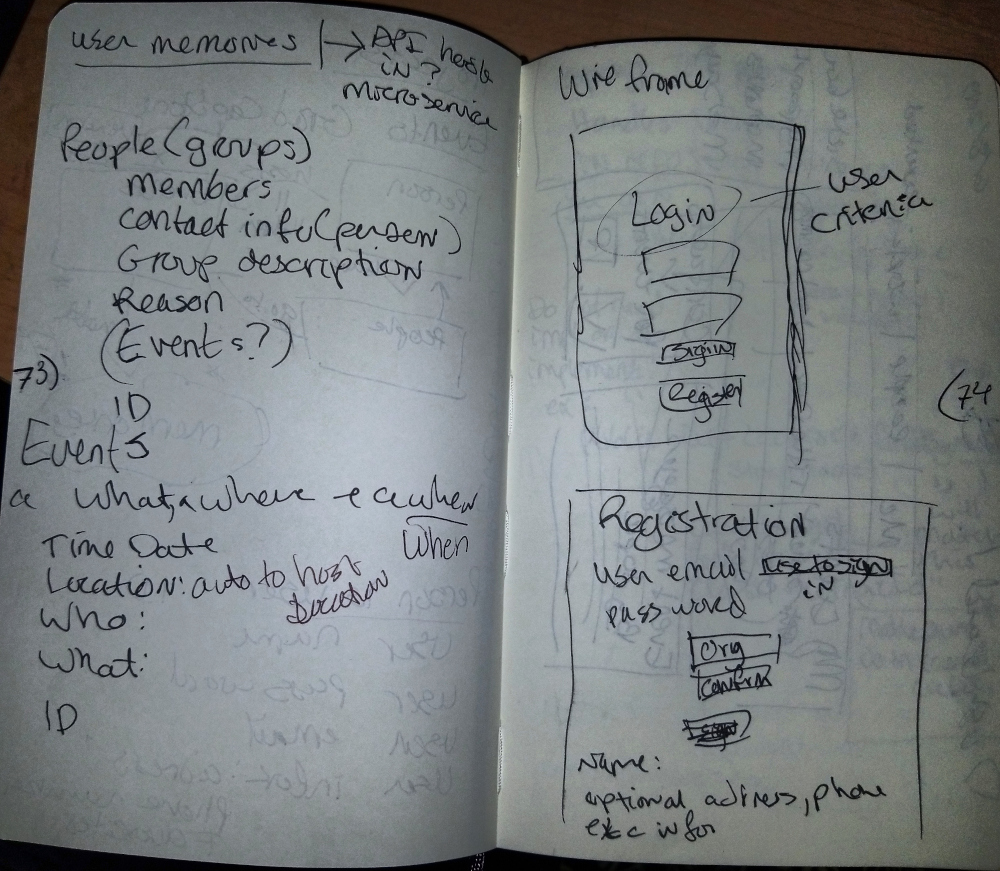 user memories | → API
in?
microservice
People (groups)
members
contact info (person)
Group description
Reason
(Events?)
73)
ID
Events
a what, where + a when
When
Time Date
Location: auto to host
Location
Who:
What:
ID
Wire frame
Login
user
criteria
Sign in
Register
(74
Registration
user email use to sign
in
password
Orig
confirm
Name:
optional address, phone
etc infor